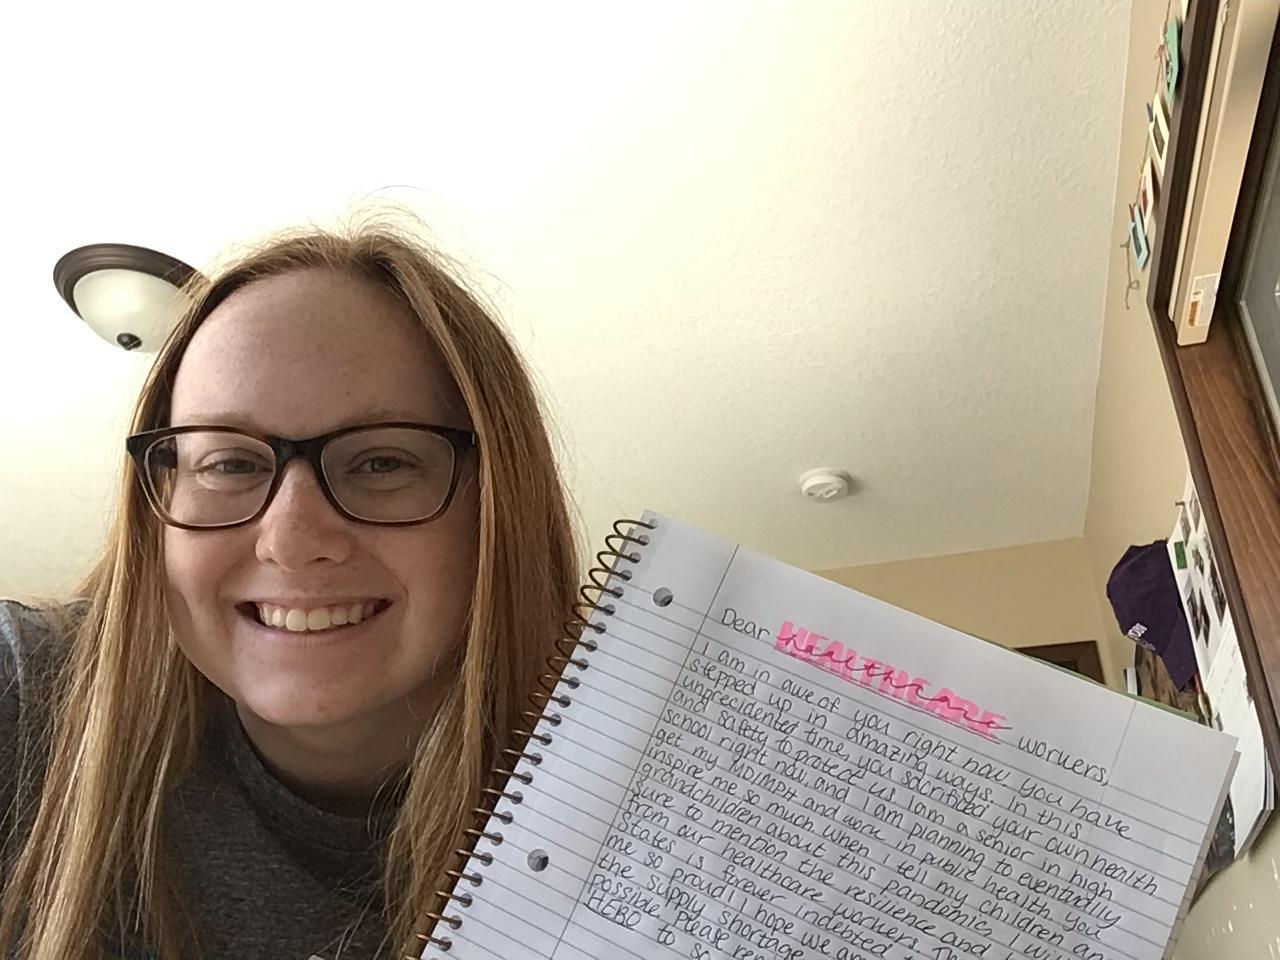 Dear HEALTHCARE healthcare workers,
I am in awe of you right now you have
stepped up in amazing ways. In this
unprecidented time you sacrificed your own health
and safety to protect us I am a senior in high
school right now and I am planning to eventually
get my MD/MPH and work in public health you
inspire me so much when I tell my children an
grandchildren about this pandemic, I will
sure to mention the resilience and
from our healthcare workers. Th
States is forever indebted t
me so proud I hope we are
the supply shortage
possible. Please rem
HERO to so